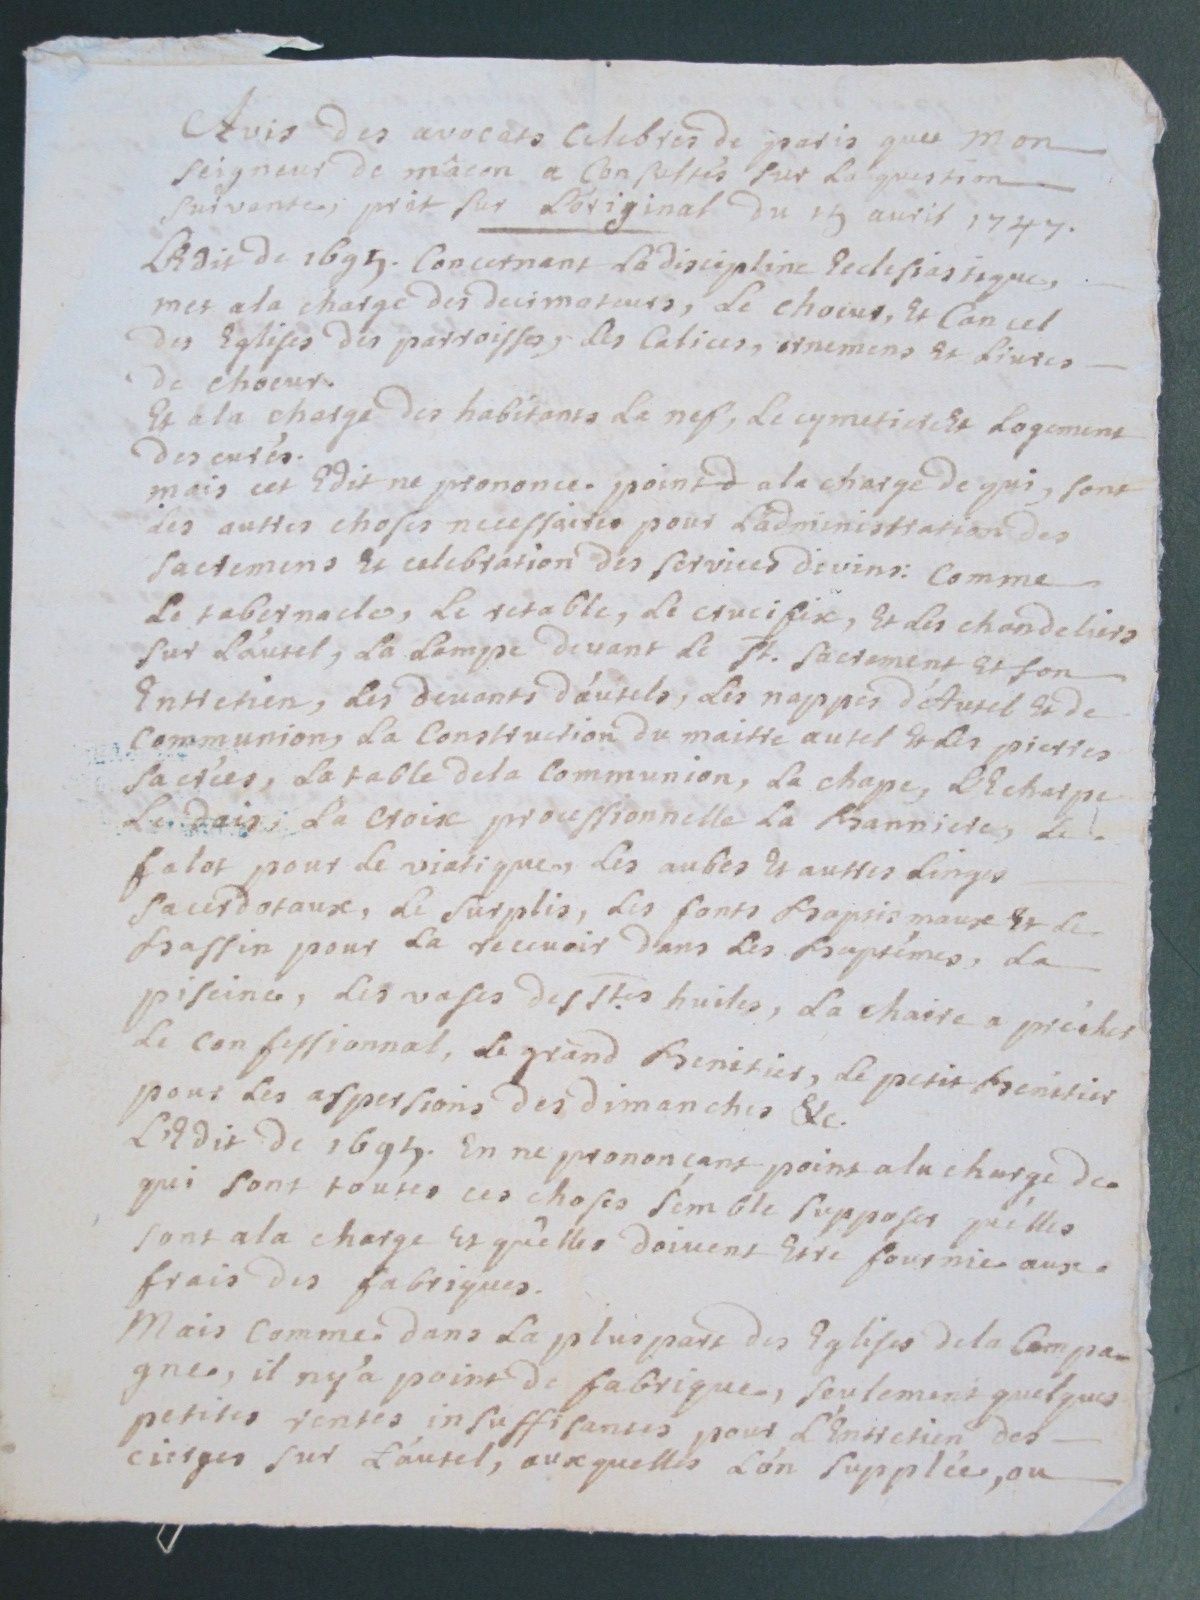 Avis des avocats celebres de paris que Mon
seigneur de mâcon a Consultés sur la question
suivante, prit sur L'original du 15 avril 1747.
L'Edit de 1695. Concernant la discipline Ecclesiastique,
met a la charge des decimateurs, le choeur, et Cancel
des Eglises des parroisses, les Calices, ornemens et Livres
de choeur.
Et a la charge des habitants la nef, le cymetiere et Logement
des curés.
mais cet Edit ne prononce point a la charge de qui, sont
les autres choses necessaires pour L'administration des
sacremens et celebration des services divins: comme
Le tabernacle, le retable, le crucifix, et les chandeliers
sur L'áutel, la Lampe devant le St. sacrement et son
Entretien, les devants d'áutels, les nappes d'Autel et de
Communion, la Construction du maitre autel et les pierres
sacrées, la table de la Communion, la chape, L'Echarpe
Le dais, la Croix processionnelle la banniere, le
falot pour le viatique, les aubes et autres Linges
sacerdotaux, le surplis, les fonts baptismaux et le
bassin pour la recevoir dans les baptêmes, la
piscine, les vases des Stes huiles, la chaire a prêcher
le confessionnal, le grand benitier, le petit benitier
pour les aspersions des dimanches &c.
L'Edit de 1695. En ne prononçant point a la charge de
qui sont toutes ces choses semble supposer qu'elles
sont a la charge et qu'elles doivent être fournie aux
frais des fabriques.
Mais Comme dans la plus part des Eglises de la Campa-
gne, il n'y a point de fabrique, seulement quelques
petites rentes insuffisantes pour L'Entretien des
cierges sur L'áutel, auxquelles L'on supplée, ou